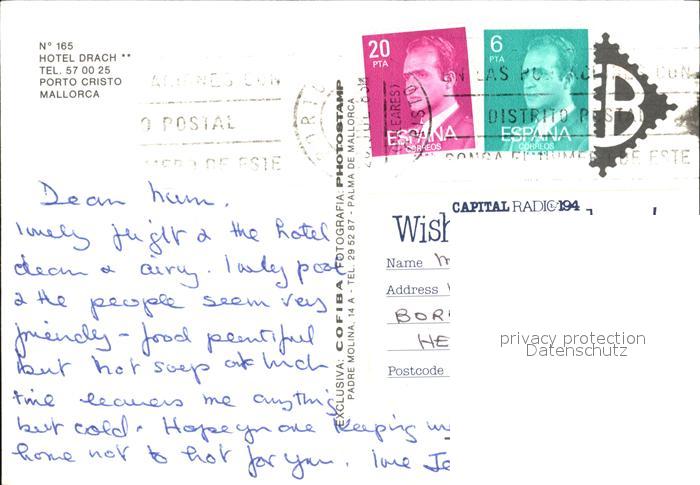 Nº 165
HOTEL DRACH **
TEL. 57 00 25
PORTO CRISTO
MALLORCA
20
PTA
ESPAÑA
CORREOS
6
PTA
ESPAÑA
CORREOS
CON
O POSTAL
DE ESTE
EN LAS CON
DISTRITO POSTAL
PONGA EL DE ESTE
B
EXCLUSIVA: COFIBA FOTOGRAFIA: PHOTOSTAMP
PADRE MOLINA, 14 A - TEL. 29 52 87 - PALMA DE MALLORCA
CAPITAL RADIO 194
Wish
Name
Address
BOR
HE
Postcode
privacy protection
Datenschutz
Dear Mum,
lovely flight & the hotel
clean & airy. lovely pool
& the people seem very
friendly - food plentiful
but hot soup at lunch
time leaves me anything
but cold. Hope you are keeping
home not to hot for you. love Je